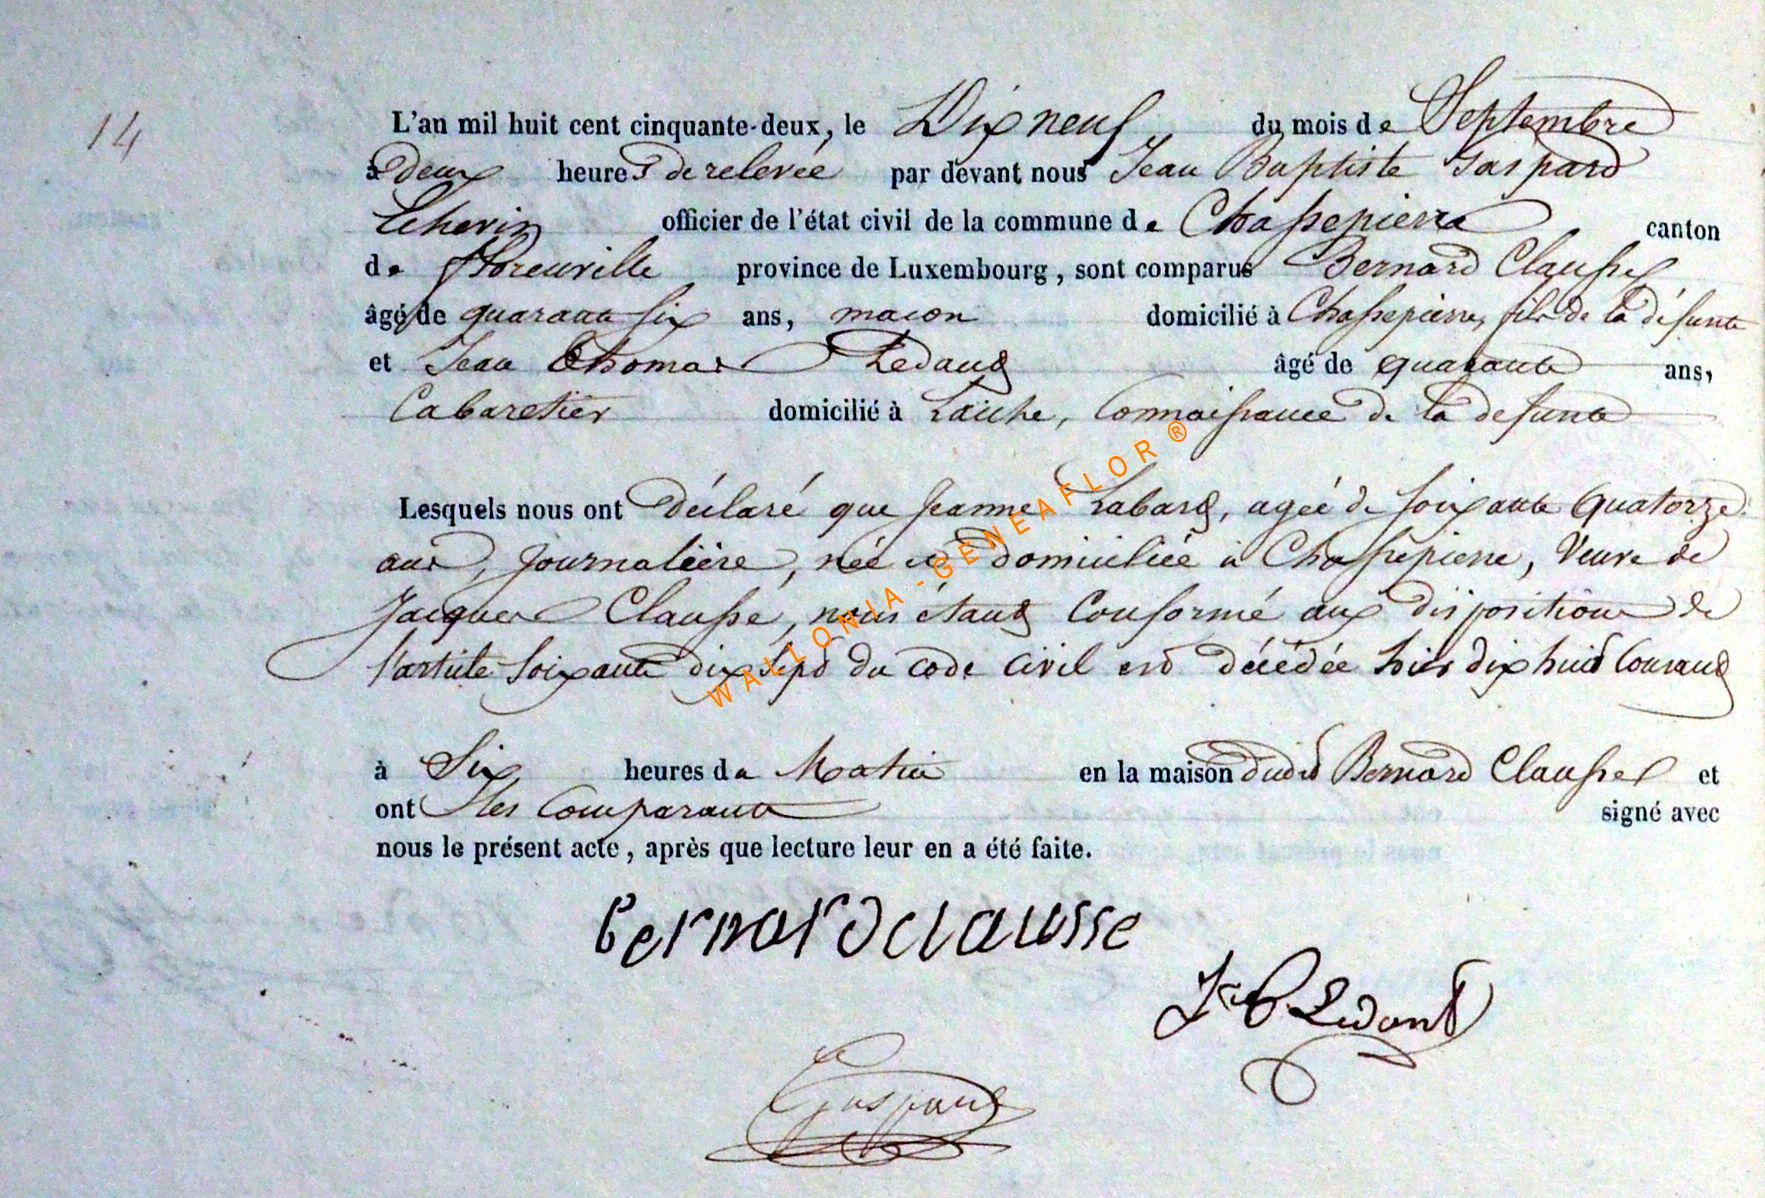 14
L'an mil huit cent cinquante-deux, le Dix neuf du mois de Septembre
à deux heures de relevée par devant nous Jean Baptiste Gaspard
Echevin officier de l'état civil de la commune de Chassepierre canton
de Florenville province de Luxembourg, sont comparus Bernard Clausse
âgé de quarante six ans, macon domicilié à Chassepierre, fils de la défunte
et Jean Thomas Ledant âgé de quarante ans,
Cabaretier domicilié à Laiche, Connaissance de la defunte
Lesquels nous ont déclaré que Jeanne Labard, agée de soixante Quatorze
ans, Journalière, née et domiciliée à Chassepierre, Veuve de
Jacques Clausse, nous étant Conformé aux dispositions de
l'article soixante dix sept du code Civil est décédée hier dix huit Courant
à Six heures du Matin en la maison dudit Bernard Clausse et
ont les Comparants signé avec
nous le présent acte, après que lecture leur en a été faite.
Bernard clausse
Jn T Ledant
Gaspard
WALLONIA - GENEAFLOR ®